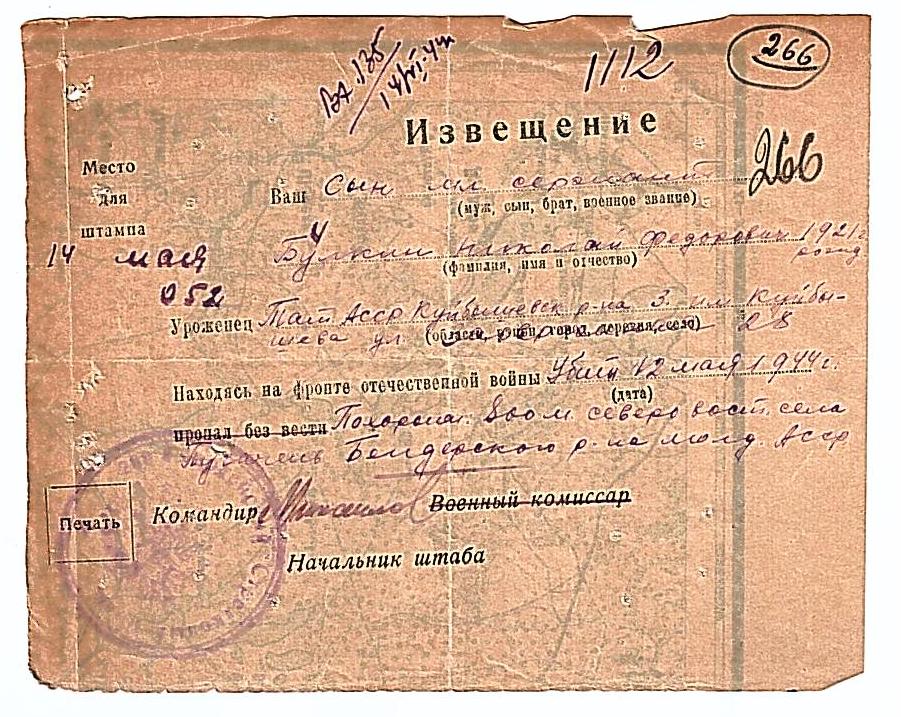 266
ВА 1135
1112
Извещение
266
Место
для
штампа
Ваш Сын мл. сержант
(муж, сын, брат, военное звание)
14 мая
052
Булкин Николай Федорович 1921 г.
рожд
(фамилия, имя и отчество)
Уроженец Тат Асср Куйбышевск р-на З. им Куйбы-
шева ул. 28
(области, город, деревня, село)
Находясь на фронте отечественной войны Убит 12 мая 1944 г.
(дата)
пропал без вести Похоронен 800 м. северо вост. села
Бендерского р-на молд. Асср
Печать
Командир Военный комиссар
Начальник штаба